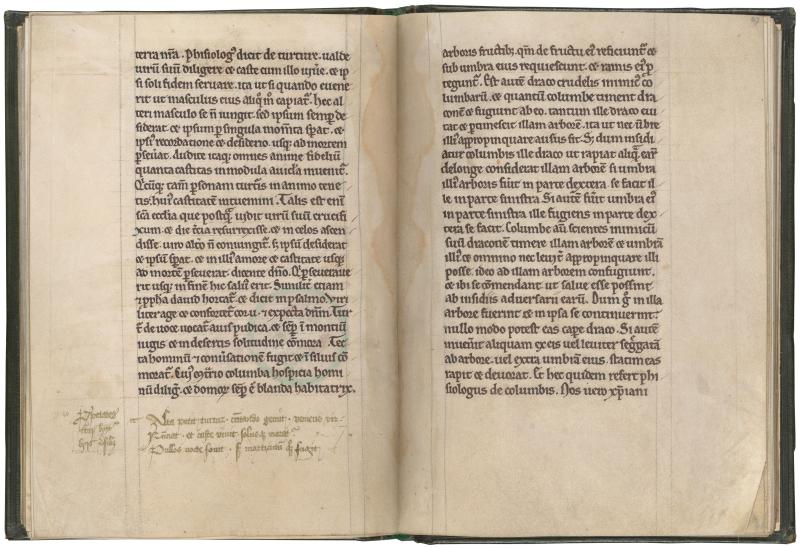 terra nr̄a. Phisiolog⁹ dicit de turture. ualde
uirū suū diligere ⁊ caste cum illo uiuere. ⁊ ip
si soli fidem seruare. ita ut si quando euene
rit ut masculus eius capiat᷑. hec al
teri masculo se n̄ iungit. sed ipsum semp de
siderat. ⁊ ipsum p singula momta sperat. ⁊
ipsi⁹ recordatione ⁊ desiderio. usq; ad mortem
pseuerat. Audite itaq; omnes anime fideliū
quanta castitas in modula auicla inuenit᷑.
psonam turturis in animo tene
tis. hui⁹ castitatē Talis est eni᷑
scā ecclia que postq̄ uidit uirū suū crucifi
xum. ⁊ die t̄cia resurrexisse. ⁊ in celos ascen
disse. uiro alt̄o n̄ coniungit᷑. s; ipsū desiderat
⁊ ipsū sperat. ⁊ in illi⁹ amore ⁊ castitate usq;
ad mortē pseuerat. dicente dn̄o. Qi pseueraue
rit usq; in finē hic salu⁹ erit. Similit᷑ etiam
⁊ ppha dauid hortat᷑. ⁊ dicit in psalmo. Viri
liter age ⁊ confortet᷑ cor tuū. ⁊ expecta dn̄m. Tur
t᷑ de uoce uocat᷑. auis pudica. ⁊ semp in montiū
iugis ⁊ in desertis solitudine comorās. Tec
ta hominū ⁊ conuersationē fugit ⁊ in siluis cō
morat᷑. Cui⁹ 9trario columba hospicia homi
nū diligit. ⁊ domor semp ē blanda habitatrix.
Alta petit turtur. cantando gemit. ueniens uer
caste uiuit solusq; morat᷑
Pullos nocte fouit.
arboris fructib;. qm̄ de fructu ei⁹ reficiunt᷑ ⁊
sub umbra eius requiescunt. ⁊ ramis ei⁹ p
teguntur. Est autē draco crudelis inimic⁹ co
lumbarū. ⁊ quantū columbe timent dra
conē ⁊ fugiunt ab eo. tantum ille draco eui
tat ⁊ ptimescit illam arborē. ita ut nec ūbre
illi⁹ appropinquare ausus sit. S; dum insidi
atur columbis ille draco ut rapiat aliq̄ earū
delonge considerat illam arborē. si umbra
illi⁹ arboris fūit in parte dextera. se facit il
le in parte sinistra. Si autē fūit umbra ei⁹
in parte sinistra ille fugiens in parte dex
tera se facit. Columbe au᷑ scientes inimicū
suū draconē timere illam arborē ⁊ umbrā
illi⁹ ⁊ omnino nec leuit᷑ appropinquare illi
posse. ideo ad illam arborem confugiunt.
⁊ ibi se cōmendant ut salue esse possint
ab insidiis aduersarii earū. Dum g᷑ in illa
arbore fuerint ⁊ in ipsa se continuerint
nullo modo potest eas cape draco. Si autē
inuenit aliquam ex eis uel leuiter segr̄gatā
ab arbore. uel extra umbrā eius. statim eas
rapit ⁊ deuorat. Et hec quidem refert phi
siologus de columbis. Nos uero xp̄iani